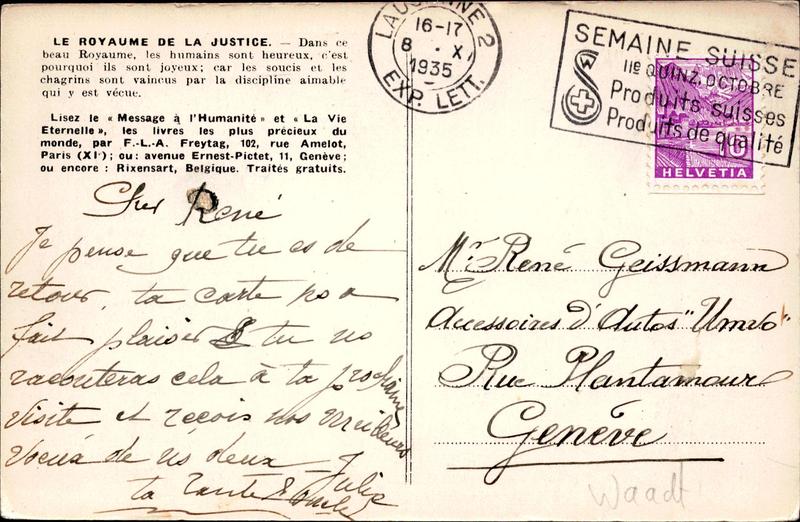 LE ROYAUME DE LA JUSTICE. — Dans ce
beau Royaume, les humains sont heureux, c'est
pourquoi ils sont joyeux; car les soucis et les
chagrins sont vaincus par la discipline aimable
qui y est vécue.
Lisez le « Message à l'Humanité » et « La Vie
Eternelle », les livres les plus précieux du
monde, par F.-L.-A. Freytag, 102, rue Amelot,
Paris (XIe); ou: avenue Ernest-Pictet, 11, Genève;
ou encore : Rixensart, Belgique. Traités gratuits.
Cher René
Je pense que tu es de
retour, ta carte ns a
fait plaisir & tu ns
raconteras cela à ta prochaine
visite et reçois nos meilleurs
voeux de ns deux
ta Tante Julie
LAUSANNE 2
16-17
8 · XI
1935
EXP. LETT.
SEMAINE SUISSE
IIe QUINZ. OCTOBRE
Produits suisses
Produits de qualité
10
HELVETIA
Mr. René Geissmann
Accessoires d'Autos "Umvo"
Rue Plantamour
Genève
Waadt